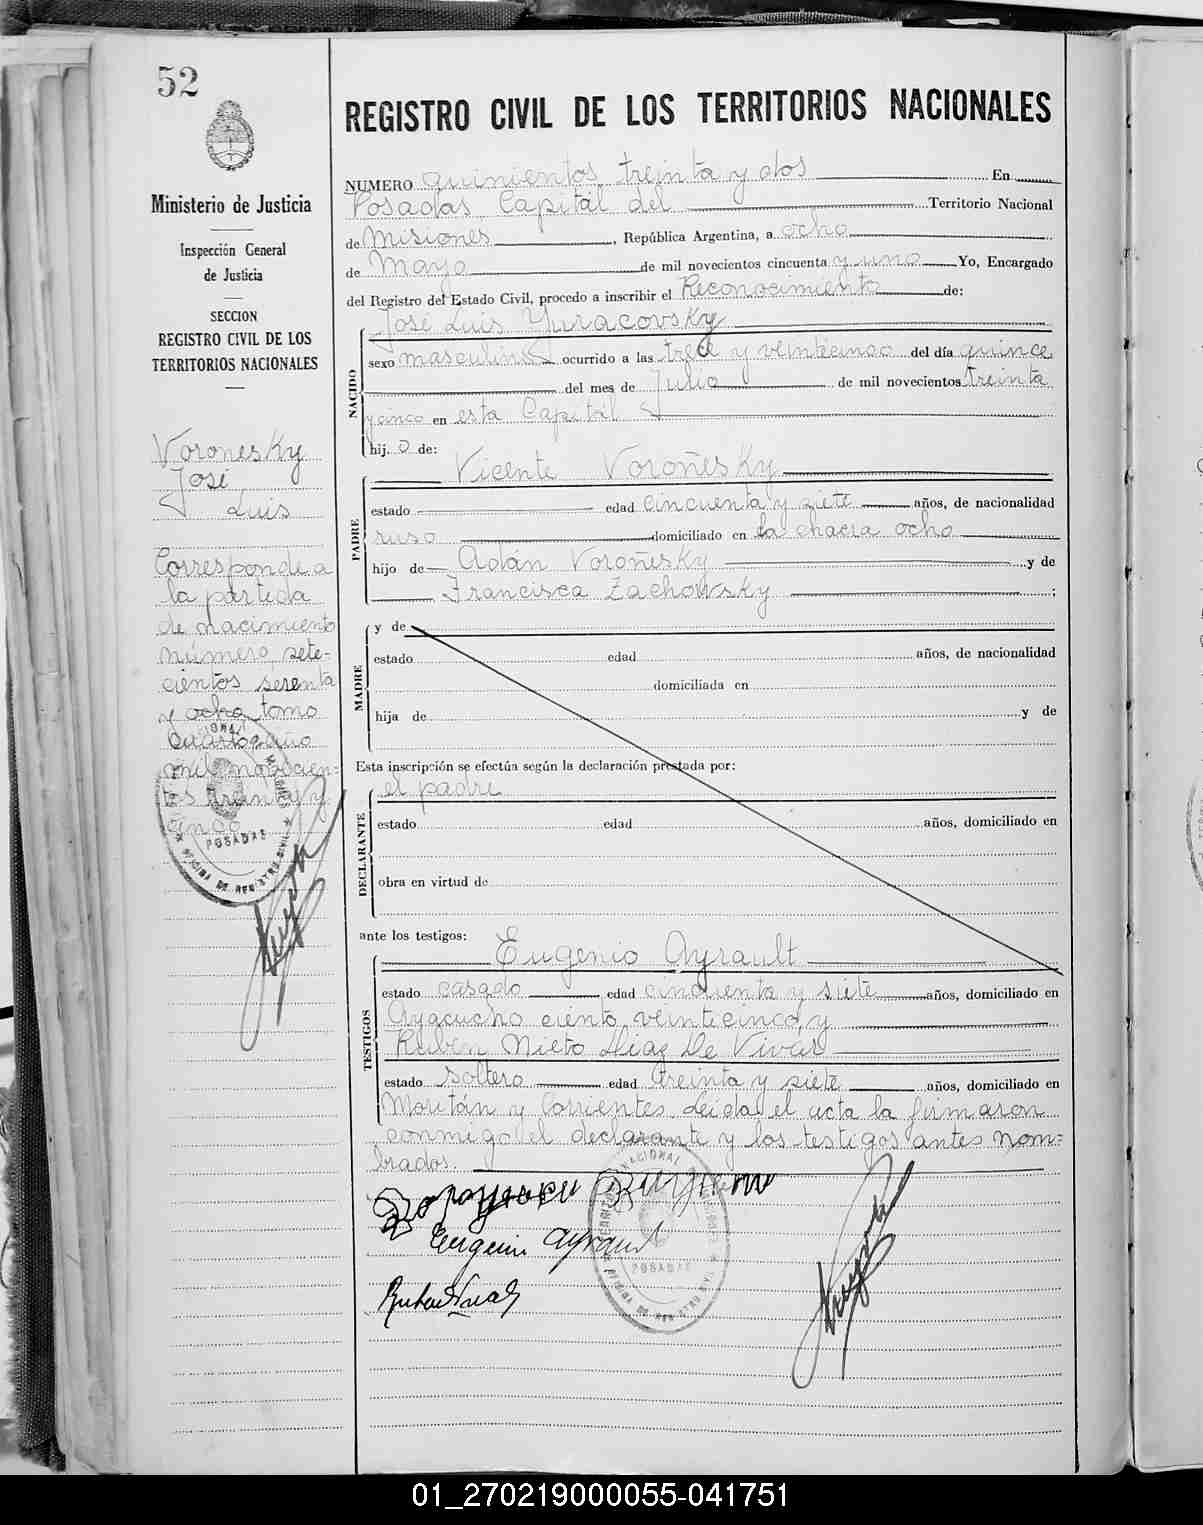 52
REGISTRO CIVIL DE LOS TERRITORIOS NACIONALES
Ministerio de Justicia
Inspección General
de Justicia
SECCION
REGISTRO CIVIL DE LOS
TERRITORIOS NACIONALES
Voronesky
José
Luis
Corresponde a
la partida
de nacimiento
número sete-
cientos setenta
y ocho tomo
cuarto año
mil novecien-
tos treinta y
cinco
NUMERO quinientos treinta y dos En
Posadas Capital del Territorio Nacional
de Misiones, República Argentina, a ocho
de Mayo de mil novecientos cincuenta y uno Yo, Encargado
del Registro del Estado Civil, procedo a inscribir el Reconocimiento de:
José Luis Yuracovsky
NACIDO
sexo masculino ocurrido a las trece y veinticinco del día quince
del mes de Julio de mil novecientos treinta
y cinco en esta Capital
hij o de:
Vicente Voroñesky
PADRE
estado edad cincuenta y siete años, de nacionalidad
ruso domiciliado en la chacra ocho
hijo de Adán Voroñesky y de
Francisca Zachowsky ;
MADRE
y de
estado edad años, de nacionalidad
domiciliada en
hija de y de
Esta inscripción se efectúa según la declaración prestada por:
el padre
DECLARANTE
estado edad años, domiciliado en
obra en virtud de
ante los testigos:
Eugenio Ayrault
TESTIGOS
estado casado edad cincuenta y siete años, domiciliado en
Ayacucho ciento veinticinco y
Rubén Nieto Diaz De Vivar
estado soltero edad treinta y siete años, domiciliado en
Moritán y Corrientes. Leida el acta la firmaron
conmigo el declarante y los testigos antes nom=
brados.
Eugenio Ayrault
POSADAS
OFICINA DE REGISTRO CIVIL
POSADAS
01_270219000055-041751